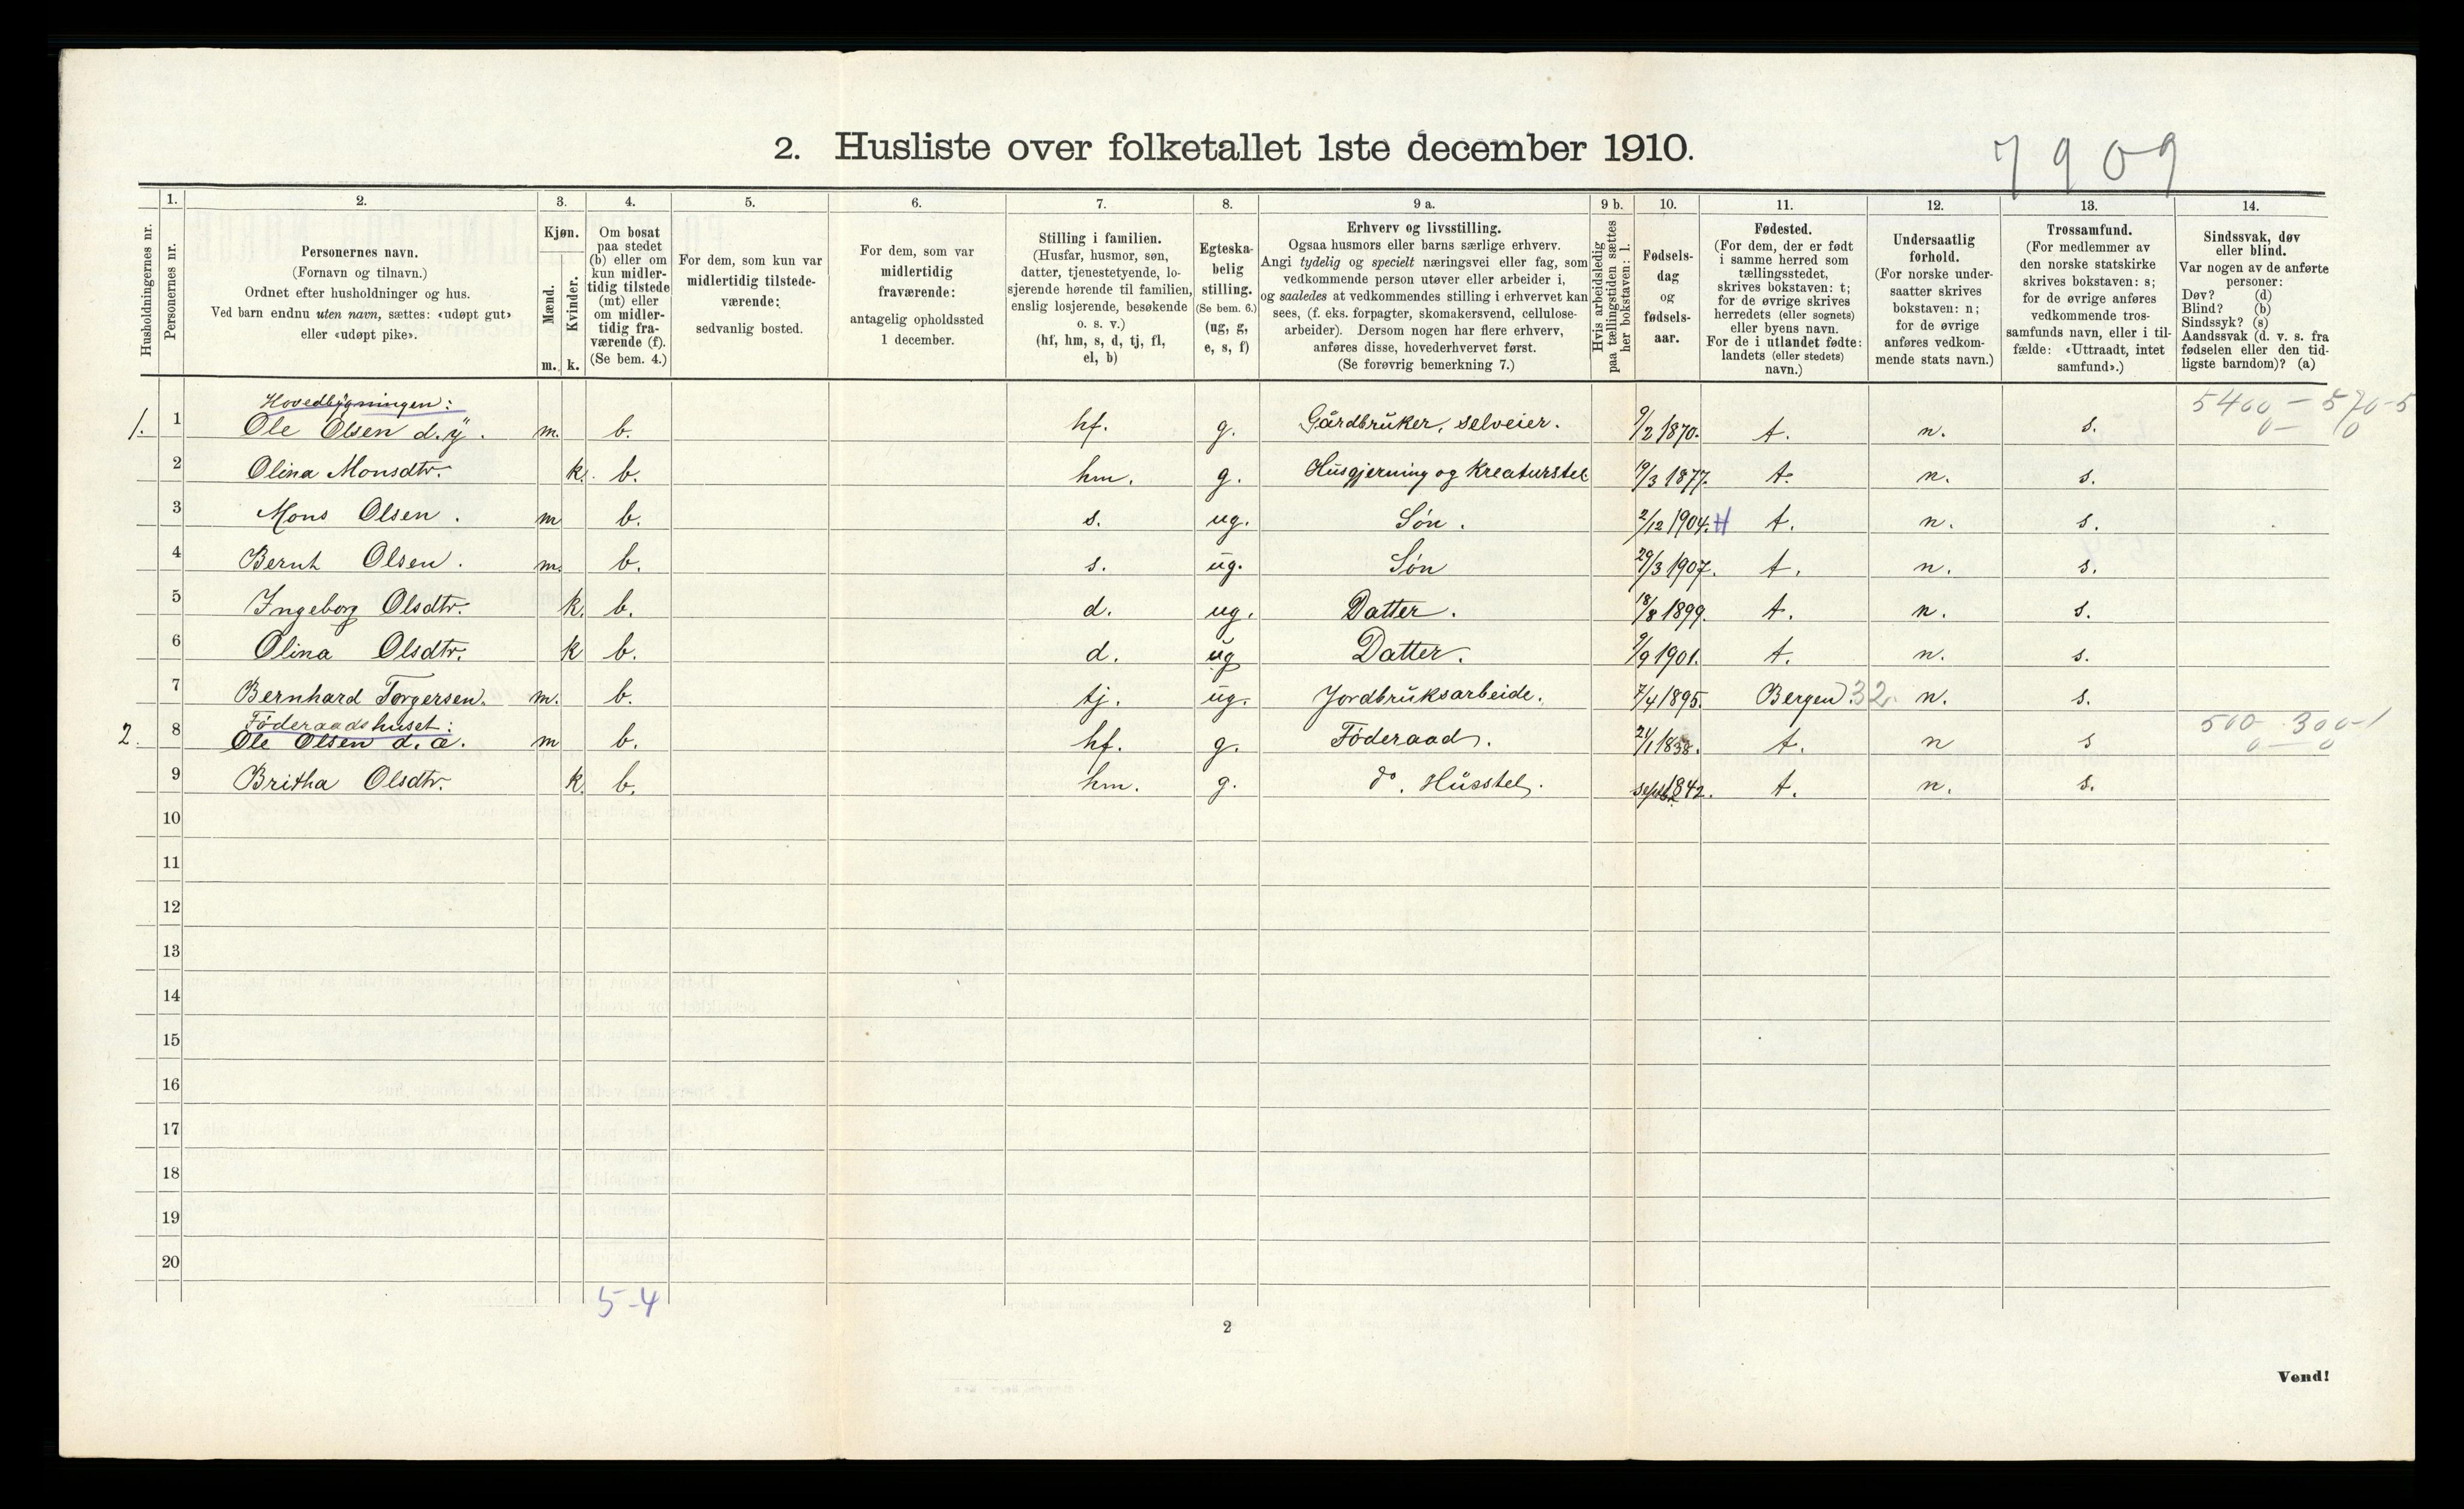 2. Husliste over folketallet 1ste december 1910.
7909
Husholdningernes nr.
1. Personernes nr.
2. Personernes navn. (Fornavn og tilnavn.) Ordnet efter husholdninger og hus. Ved barn endnu uten navn, sættes: «udøpt gut» eller «udøpt pike».
3. Kjøn. Mænd. m. Kvinder. k.
4. Om bosat paa stedet (b) eller om kun midlertidig tilstede (mt) eller om midlertidig fraværende (f). (Se bem. 4.)
5. For dem, som kun var midlertidig tilstedeværende: sedvanlig bosted.
6. For dem, som var midlertidig fraværende: antagelig opholdssted 1 december.
7. Stilling i familien. (Husfar, husmor, søn, datter, tjenestetyende, losjerende hørende til familien, enslig losjerende, besøkende o. s. v.) (hf, hm, s, d, tj, fl, el, b)
8. Egteskabelig stilling. (Se bem. 6.) (ug, g, e, s, f)
9 a. Erhverv og livsstilling. Ogsaa husmors eller barns særlige erhverv. Angi tydelig og specielt næringsvei eller fag, som vedkommende person utøver eller arbeider i, og saaledes at vedkommendes stilling i erhvervet kan sees, (f. eks. forpagter, skomakersvend, cellulosearbeider). Dersom nogen har flere erhverv, anføres disse, hovederhvervet først. (Se forøvrig bemerkning 7.)
9 b. Hvis arbeidsledig paa tællingstiden sættes her bokstaven: l.
10. Fødselsdag og fødselsaar.
11. Fødested. (For dem, der er født i samme herred som tællingsstedet, skrives bokstaven: t; for de øvrige skrives herredets (eller sognets) eller byens navn. For de i utlandet fødte: landets (eller stedets) navn.)
12. Undersaatlig forhold. (For norske undersaatter skrives bokstaven: n; for de øvrige anføres vedkommende stats navn.)
13. Trossamfund. (For medlemmer av den norske statskirke skrives bokstaven: s; for de øvrige anføres vedkommende trossamfunds navn, eller i tilfælde: «Uttraadt, intet samfund».)
14. Sindssvak, døv eller blind. Var nogen av de anførte personer: Døv? (d) Blind? (b) Sindssyk? (s) Aandssvak (d. v. s. fra fødselen eller den tidligste barndom)? (a)
Hovedbygningen: 5400 - 570-5
1. 1 Ole Olsen d.y. m. b. hf. g. Gårdbruker, selveier. 9/2 1870. t. n. s. 0 - 0
2 Olina Monsdtr. k. b. hm. g. Husgjerning og kreaturstel 19/3 1877. t. n. s.
3 Mons Olsen. m b. s. ug. Søn. 2/12 1904. t. n. s.
4 Bernt Olsen. m. b. s. ug. Søn 29/3 1907. t. n. s.
5 Ingeborg Olsdtr. k. b. d. ug. Datter. 18/8 1899. t. n. s.
6 Olina Olsdtr. k b. d. ug Datter. 9/9 1901. t. n. s.
7 Bernhard Torgersen. m. b. tj. ug. Jordbruksarbeide. 7/4 1895. Bergen. 32 n. s.
Føderaadshuset: 500 - 300-1
2. 8 Ole Olsen d.æ. m b. hf. g. Føderaad. 21/1 1838. t. n s 0 - 0
9 Britha Olsdtr. k. b. hm. g. do. Husstel. septb. 1842. t. n. s.
10
11
12
13
14
15
16
17
18
19
20
5-4
2
Vend!